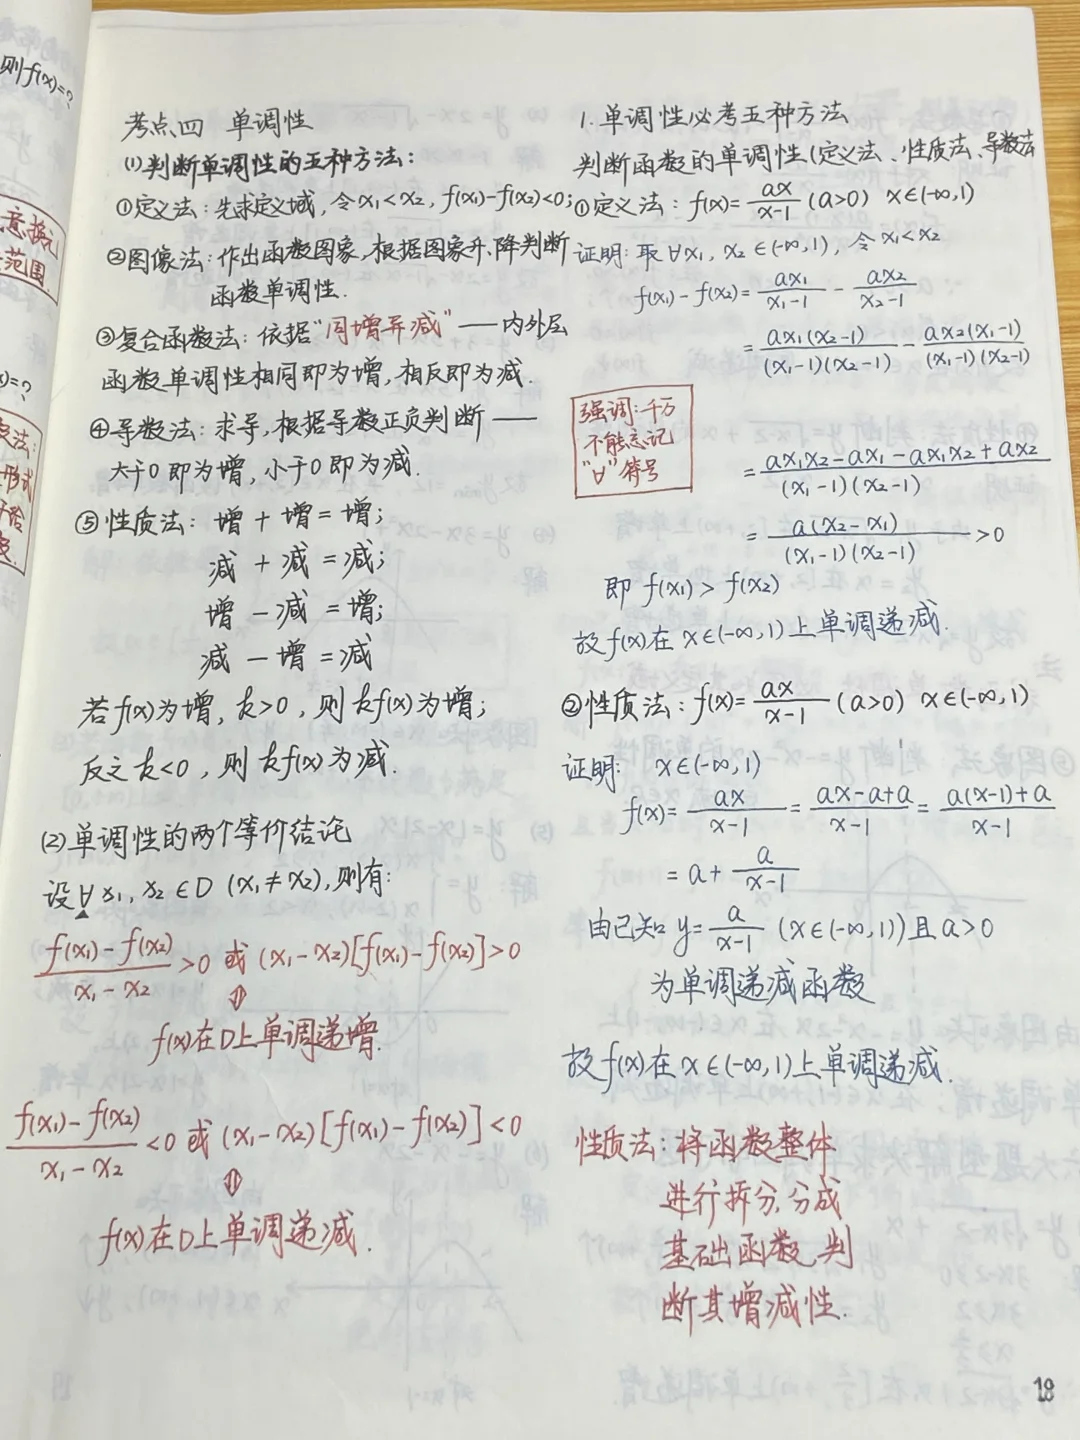 则f(x)=?
意换元
范围.
)=?
法:
形式
考点四 单调性
(1)判断单调性的五种方法:
①定义法:先求定义域,令x₁<x₂,f(x₁)-f(x₂)<0;
②图像法:作出函数图象,根据图象升、降判断
函数单调性.
③复合函数法:依据"同增异减"——内外层
函数单调性相同即为增,相反即为减.
④导数法:求导,根据导数正负判断——
大于0即为增,小于0即为减.
⑤性质法:增+增=增;
减+减=减;
增-减=增;
减-增=减
若f(x)为增,k>0,则kf(x)为增;
反之k<0,则kf(x)为减.
(2)单调性的两个等价结论
设∀x₁,x₂∈D(x₁≠x₂),则有:
(f(x₁)-f(x₂))/(x₁-x₂)>0 或 (x₁-x₂)[f(x₁)-f(x₂)]>0
⇕
f(x)在D上单调递增.
(f(x₁)-f(x₂))/(x₁-x₂)<0 或 (x₁-x₂)[f(x₁)-f(x₂)]<0
⇕
f(x)在D上单调递减.
1.单调性必考五种方法
判断函数的单调性(定义法、性质法、导数法
①定义法:f(x)=ax/(x-1)(a>0) x∈(-∞,1)
证明:取∀x₁,x₂∈(-∞,1),令x₁<x₂
f(x₁)-f(x₂)=ax₁/(x₁-1)-ax₂/(x₂-1)
=ax₁(x₂-1)/((x₁-1)(x₂-1))-ax₂(x₁-1)/((x₁-1)(x₂-1))
强调:千万
不能忘记
"∀"符号
=(ax₁x₂-ax₁-ax₁x₂+ax₂)/((x₁-1)(x₂-1))
=a(x₂-x₁)/((x₁-1)(x₂-1))>0
即f(x₁)>f(x₂)
故f(x)在x∈(-∞,1)上单调递减.
②性质法:f(x)=ax/(x-1)(a>0) x∈(-∞,1)
证明: x∈(-∞,1)
f(x)=ax/(x-1)=(ax-a+a)/(x-1)=(a(x-1)+a)/(x-1)
=a+a/(x-1)
由已知y=a/(x-1)(x∈(-∞,1))且a>0
为单调递减函数
故f(x)在x∈(-∞,1)上单调递减.
性质法:将函数整体
进行拆分,分成
基础函数,判
断其增减性.
18